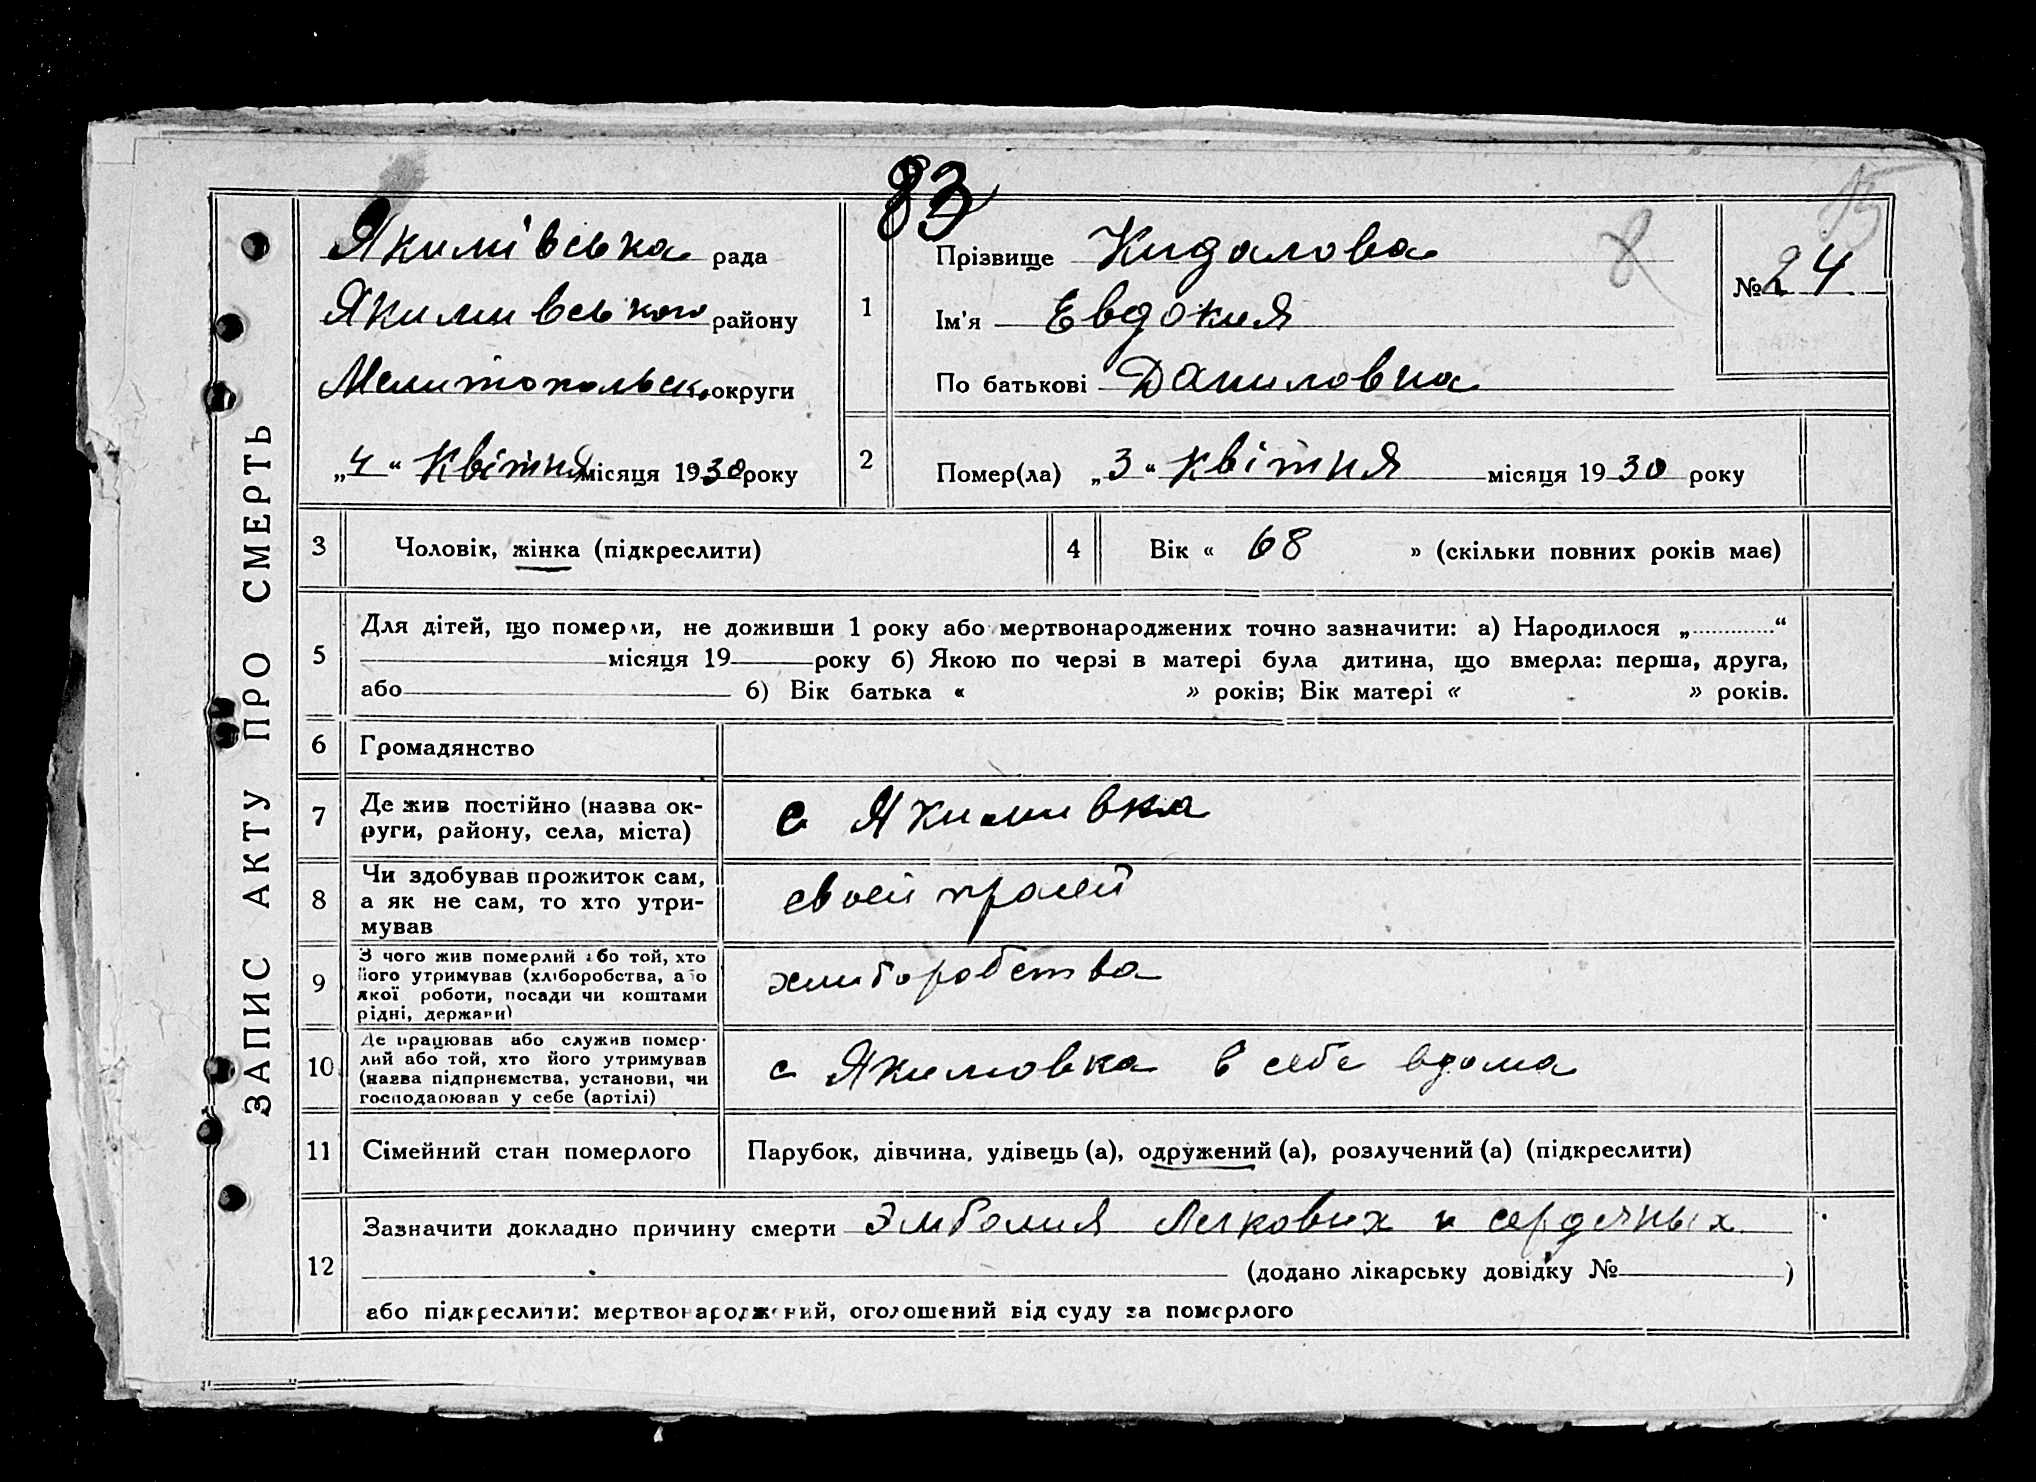 83
15
8
ЗАПИС АКТУ ПРО СМЕРТЬ
Якимівська рада
Якимивського району
Мелитопольск. округи
„4“ Квітня місяця 1930 року
1
Прізвище Кидалова
Ім'я Евдокия
По батькові Даниловна
№ 24
2
Помер(ла) „3“ Квітня місяця 1930 року
3 Чоловік, жінка (підкреслити)
4 Вік « 68 » (скільки повних років має)
5
Для дітей, що померли, не доживши 1 року або мертвонароджених точно зазначити: а) Народилося „ “
місяця 19 року б) Якою по черзі в матері була дитина, що вмерла: перша, друга,
або б) Вік батька « » років; Вік матері « » років.
6 Громадянство
7
Де жив постійно (назва ок-
руги, району, села, міста)
с Якимивка
8
Чи здобував прожиток сам,
а як не сам, то хто утри-
мував
своей працей
9
З чого жив померлий або той, хто
його утримував (хліборобства, або
якої роботи, посади чи коштами
рідні, держави)
хлиборобства
10
Де працював або служив помер-
лий або той, хто його утримував
(назва підприємства, установи, чи
господарював у себе (артілі)
с Якимовка в себе вдома
11 Сімейний стан померлого
Парубок, дівчина, удівець (а), одружений (а), розлучений (а) (підкреслити)
12
Зазначити докладно причину смерти Эмболия Легкових и сердечных
(додано лікарську довідку № )
або підкреслити: мертвонароджений, оголошений від суду за померлого